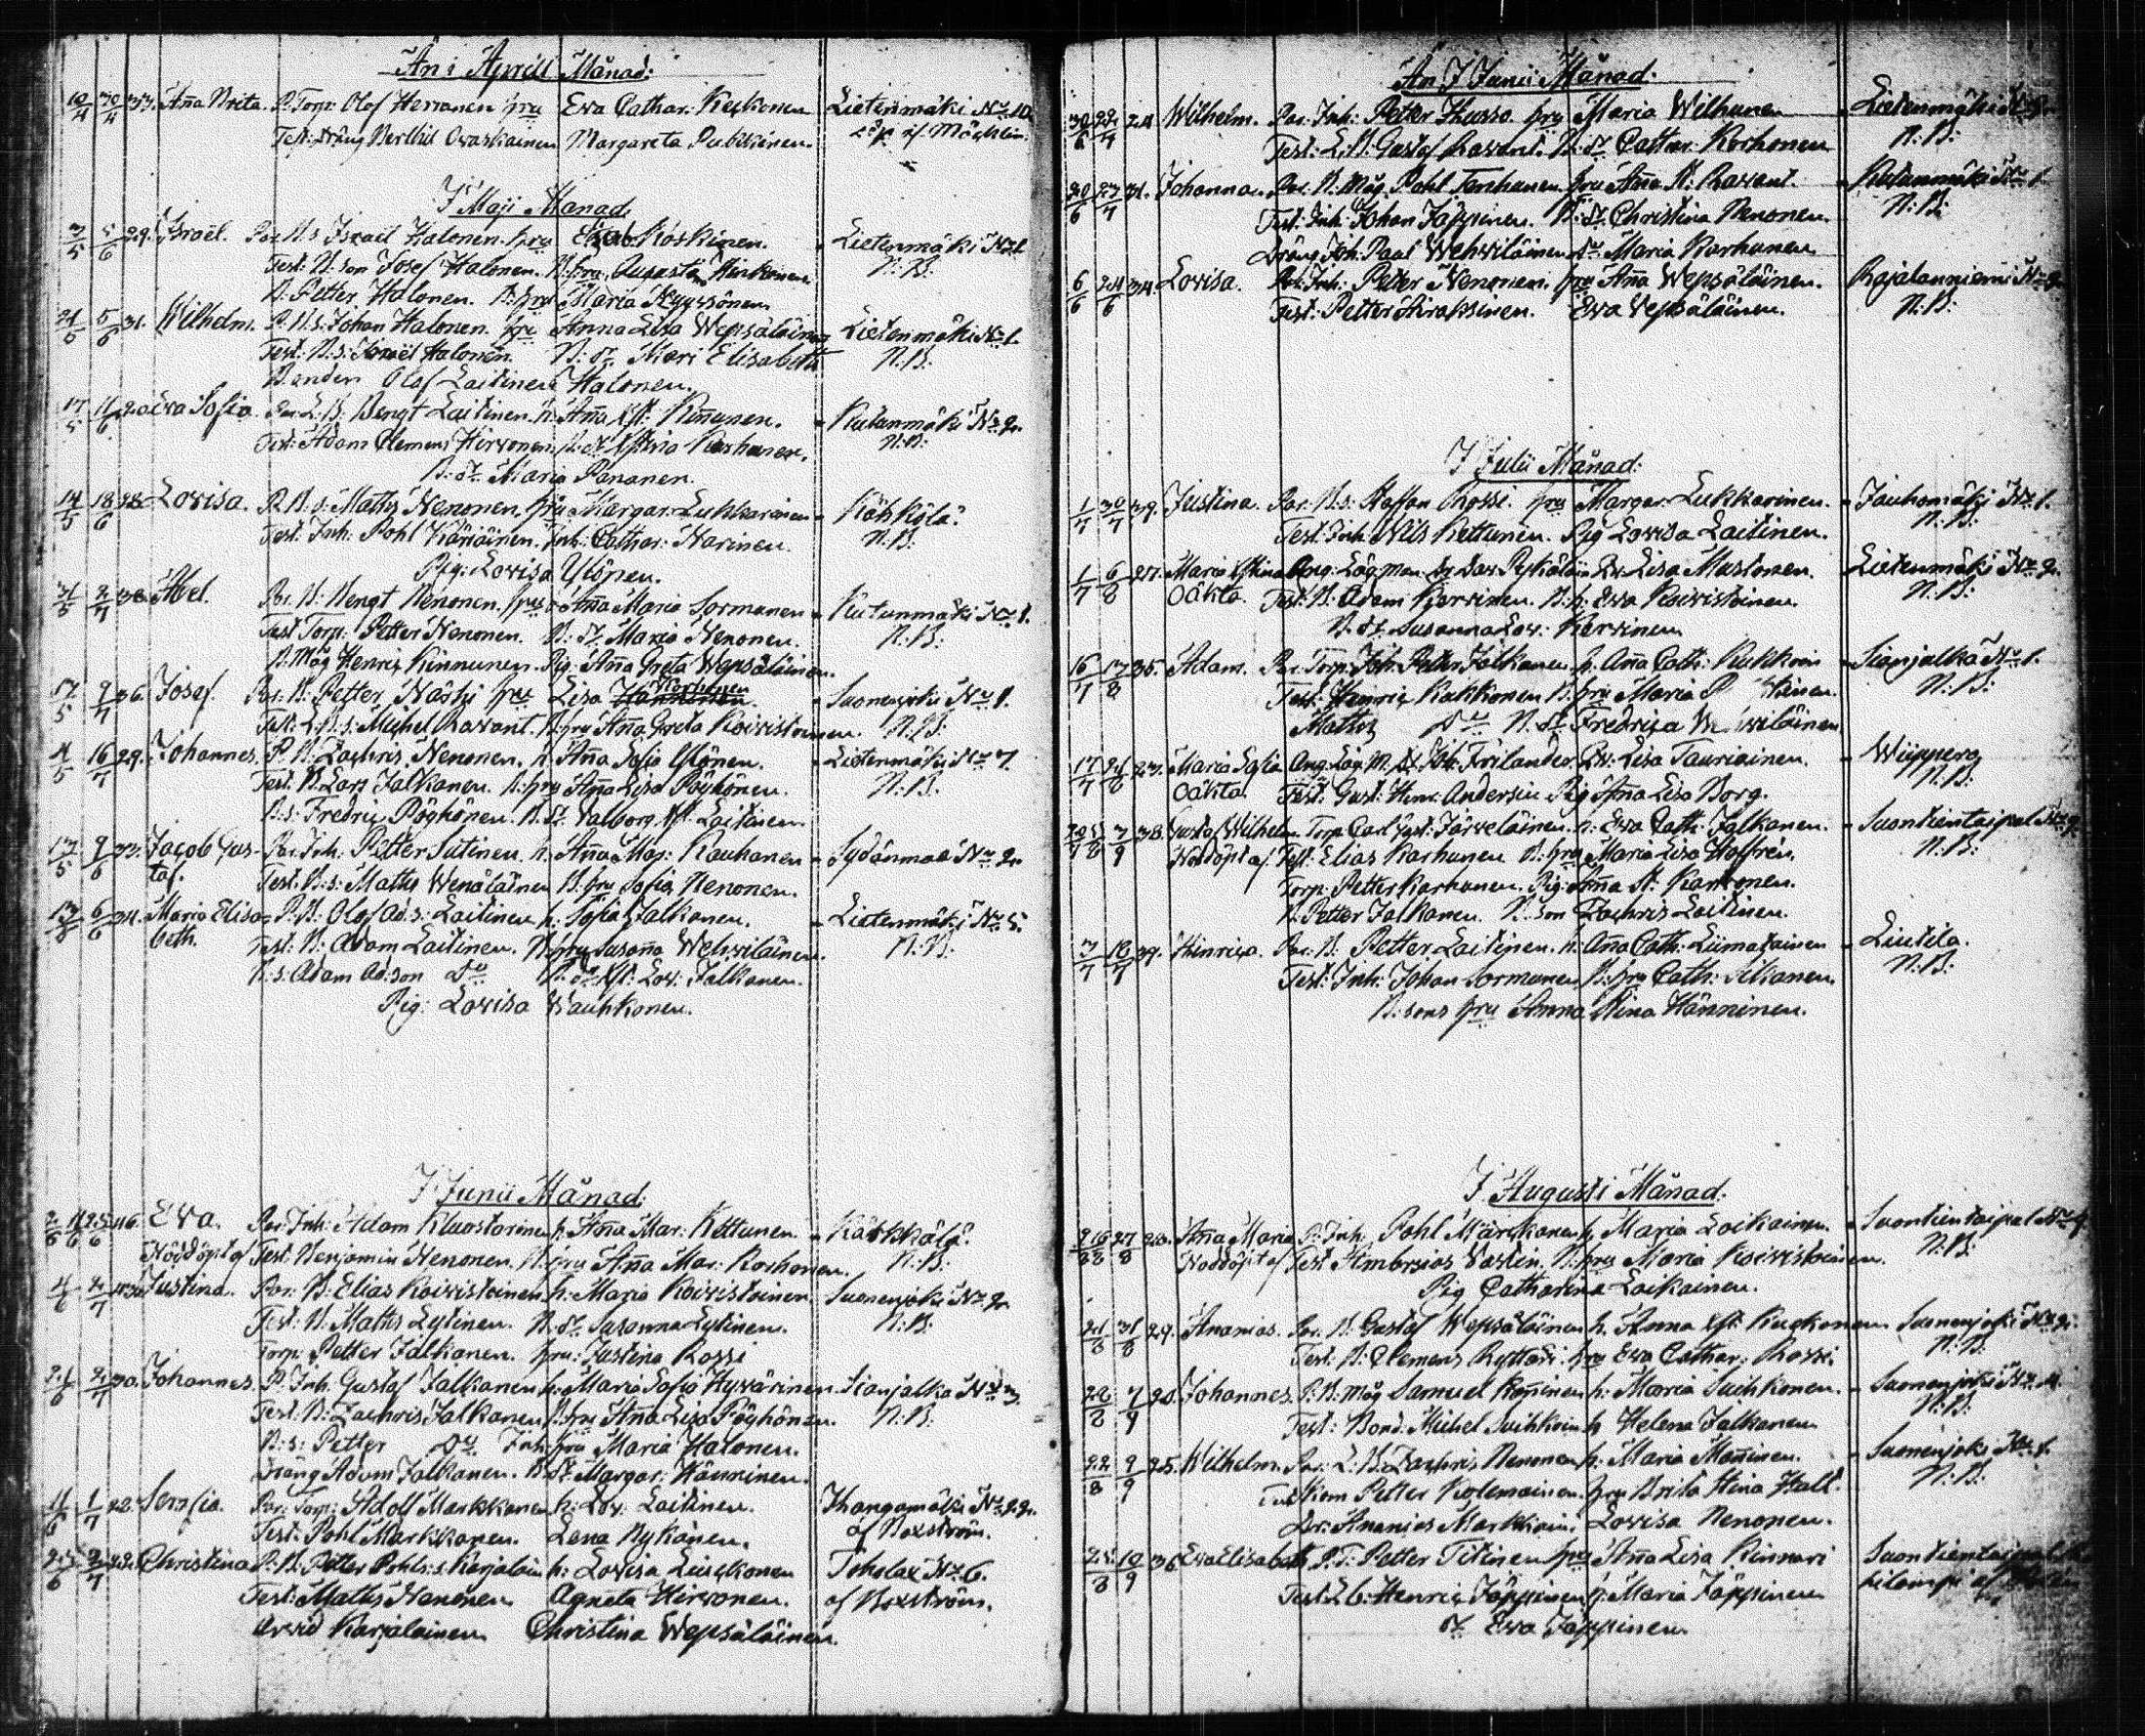 Än i Aprill Månad:
10/4 30/4 33. Aña Brita. P. Torp: Olof Herranen hru Eva Cathar: Keckonen Lietenmäki No 10.
Test: Dräng Berthil Ovaskainen Margareta Pulkkinen.
I Maji Månad.
3/5 5/6 29. Israël. Par. B.s Israël Halonen. hru Elisab. Koskinen. Lietenmäki No 1.
Test: B. son Josef Halonen. B. hru Augusta Hinkonen N:B:
B. Petter Halonen. B. hru Maria Kyyrönen
21/5 5/6 31. Wilhelm. P. B.s. Johan Halonen. hru Anna Lisa Wepsäläinen Lietenmäki No 1.
Test: B.s: Israël Halonen. B: dr Mari Elisabeth N:B:
Bonden Olof Laitinen Halonen.
17/5 11/6 20. Eva Sofia. Par. L.B. Bengt Laitinen. h. Aña Kst: Kiñunen. Kutunmäki No 2.
Test: Adam Clemens Hirvonen, B. dr Kstina Karhunen. N:B:
B: dr Maria Pananen.
14/5 18/6 28. Lovisa. P. B.s: Maths Nenonen. hru Margar: Lukkarinen Kähkölä.
Test. Inh: Pohl Kärjäinen. Inh: Cathar: Narinen. N:B:
Pig: Lovisa Ylönen.
31/5 2/7 38. Abel. Par. B. Bengt Nenonen. hru Aña Maria Sormanen Kutunmäki No 1.
Test Torp: Petter Nenonen. B: dr Maria Nenonen. N:B:
B. Måg Henric Kinnunen. Pig: Aña Greta Wepsäläinen.
17/5 9/7 36. Josef. Par. B. Petter Nästi hru Lisa Korhonen Suonenjoki No 1.
Test: L.B.s: Michel Ravant. B. hru Aña Greta Koivistoinen. N:B:
4/5 16/7 29. Johannes. P. B. Zachris Nenonen. h. Aña Sofia Ylönen. Lietenmäki No 7.
Test: B. Lars Jalkanen. B. hru Aña Lisa Pöyhönen. N:B:
B.s: Fredric Pöyhönen. B. dr Valborg Kst: Laitinen
13/5 9/6 33. Jacob Gus- Par. Inh: Petter Sutinen. h. Aña Maj: Kauhanen Sydänmaa No 2.
taf. Test. B.s: Maths Wenäläinen B. hru Sofia Nenonen.
13/5 6/6 24. Maria Elisa- P. B: Olof Ad.s: Laitinen h: Sofia Jalkanen. Lietenmäki No 5.
beth. Test: B: Adam Laitinen. B. hru Susaña Wehviläinen. N:B:
B.s. Adam Ad:son Do B. dr Kst: Lov: Jalkanen.
Pig: Lovisa Vauhkonen.
I Junii Månad:
Eva. Par. Inh: Adam Kluostarinen h. Aña Mar: Kettunen. Kähkölä.
Nöddöpt af Test: Benjamin Nenonen. B. hru Aña Mar: Korhonen. N:B:
4/6 2/7 Justina. Par. B: Elias Koivistoinen h: Maria Koivistoinen. Suonenjoki No 2.
Test: B: Maths Lytinen. B. dr Susanna Lytinen. N:B:
Torp: Petter Jalkanen. hru: Justina Rossi
21/6 2/7 30. Johannes. P. Inh. Gustaf Jalkanen h: Maria Sofia Hyvärinen. Sianjalka No 3.
Test: B: Zachris Jalkanen B. hru Aña Lisa Pöyhönen. N:B:
B:s: Petter Do Inh. hru Maria Halonen.
Dräng Adam Jalkanen. B. dr Margar: Hänninen.
11/6 1/7 22. Serafia. Par. Torp: Adolf Markkanen h: Lov. Laitinen. Ihangamäki No 22.
Test: Pohl Markkanen. Lena Nykänen. af Boxström.
25/6 2/7 22. Christina P. B. Petter Pohls:s Karjalain h: Lovisa Leiuckonen Toholax No 6.
Test: Maths Nenonen Agneta Hirvonen. af Boxström.
Arvid Karjalainen Christina Wepsäläinen.
Än I Junii Månad.
24 Wilhelm. Par. Inh: Petter Husso hru Maria Wilhunen Lietenmäki No
Test: L.B: Gustaf Ravant. B: dr Cathar: Korhonen N:B:
20/6 23/7 31. Johanna. Par. B. Måg Pohl Tenhunen hru Aña K: Ravant. Kutunmäki No 1.
Test: Inh: Johan Jäppinen. B: dr Christina Nenonen. N:B:
Dräng Joh: Paul Wehviläinen dr Maria Karhunen
6/6 24/6 34. Lovisa. Par. Inh: Petter Nenonen. hru Aña Wepsäläinen. Rajalanniemi No 2.
Test: Petter Airaksinen. Eva Vepsäläinen. N:B:
I Julii Månad:
1/7 30/7 39. Justina. Par. B.s: Staffan Rossi. hru Margar: Lukkarinen. Jauhomäki No 1.
Test: Inh: Nils Kettunen. Pig Lovisa Laitinen. N:B:
1/7 6/8 27. Maria Kstina Ang: Läg man Dav. Pykäläin Qv. Lisa Mustonen. Lietenmäki No 2.
Oäkta. Test: B: Adam Kervinen. B. h: Eva Koivistoinen. N:B:
B. dr Susanna Lov: Kervinen
16/7 17/8 35. Adam. Par. Torp: Joh: Petter Jalkanen h. Aña Cath: Kukkoin Sianjalka No 1.
Test: Henric Kukkonen B. hru Maria N:B:
Mathis Do B. dr Fredrica Wehviläinen
17/7 21/8 23. Maria Sofia Ang: Läg M. Joh: Frilander Qv. Lisa Tauriainen. Wiipperog
Oäkta. Test: Gust: Henr. Andersin Pig Aña Lisa Borg. N:B:
38 Gustaf Wilhelm Torp. Carl Gust: Järveläinen. h: Eva Cath: Jalkanen. Suontientaipal No 2.
Nöddöpt af Test: Elias Karhunen B. hru Maria Lisa Holfrén. N:B:
Torp: Petter Karhunen. Pig: Aña K: Karkonen.
B. Petter Jalkanen. B. son Zachris Laitinen.
3/7 18/7 39. Hinrica. Par. B. Petter Laitinen. h: Aña Cath: Liimatainen Liutila.
Test: Inh: Johan Sormunen B. hru Cath: Silkanen N:B:
B. sons hru Anna Stina Hänninen.
I Augusti Månad:
Aña Maria P. Inh: Pohl Märckanen h. Maria Loikainen. Suontientaipal No
Nöddöpt af Test Ambrosius Vartin. B. hru Maria Koivistoinen. N:B:
Pig Catharina Loikainen.
21/8 31/8 29. Ananias. Par. B. Gustaf Wepsäläinen h. Anna Kst. Kuckonen Suonenjoki No 2.
Test: B: Clemens Ryttäri. hru Eva Cathar: Rossi N:B:
22/8 7/9 20. Johannes. P: B. Måg Samuel Roñinen h: Maria Suihkonen. Suonenjoki No 4.
Test: Bond. Michel Suihkoin h Helena Jalkanen N:B:
22/8 9/9 25. Wilhelm. Par: L.B. Zachris Nenonen h: Maria Mañinen. Suonenjoki No 1.
Test Kom Petter Kolemainen. hru Brita Stina Hall. N:B:
Dr: Ananias Markkain. Lovisa Nenonen.
25/8 10/9 36 Eva Elisabeth P. T: Petter Titinen hru Aña Lisa Kinnari Suontientaipal
Test: Henric Jäppinen h. Maria Jäppinen
dr Eva Jäppinen.